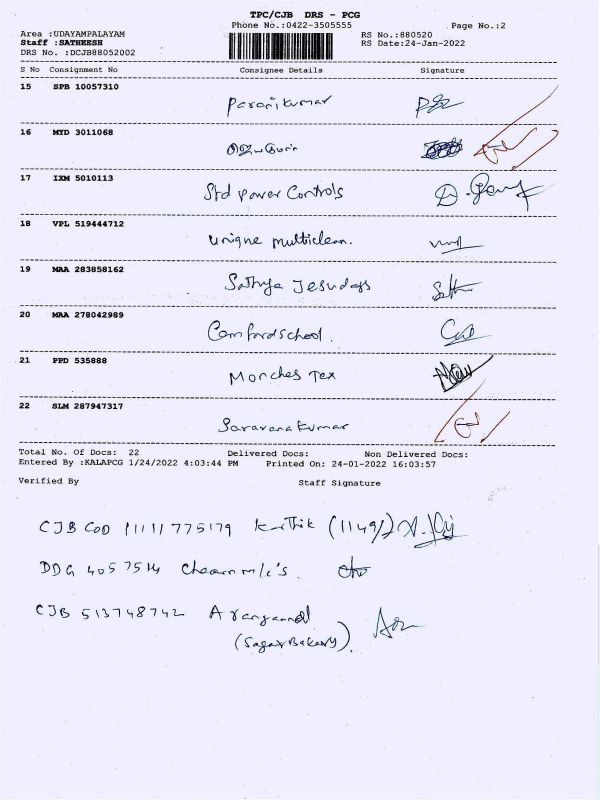 TPC/CJB DRS - PCG
Phone No.:0422-3505555 Page No.:2
Area :UDAYAMPALAYAM RS No.:880520
Staff :SATHEESH RS Date:24-Jan-2022
DRS No. :DCJB88052002
S No Consignment No Consignee Details Signature
15 SPB 10057310 Paranikumar
16 MYD 3011068
17 IXM 5010113 Std Power Controls
18 VPL 519444712 Unique multiclean.
19 MAA 283858162 Sathya Jesudass
20 MAA 278042989 Comfordschool.
21 PPD 535888 Monches Tex
22 SLM 287947317 Saravanakumar
Total No. Of Docs: 22 Delivered Docs: Non Delivered Docs:
Entered By :KALAPCG 1/24/2022 4:03:44 PM Printed On: 24-01-2022 16:03:57
Verified By Staff Signature
CJB COD 11111775179 Karthik (1149/)
DDG 4057514
CJB 513748742 A
(Sagar Bakery)